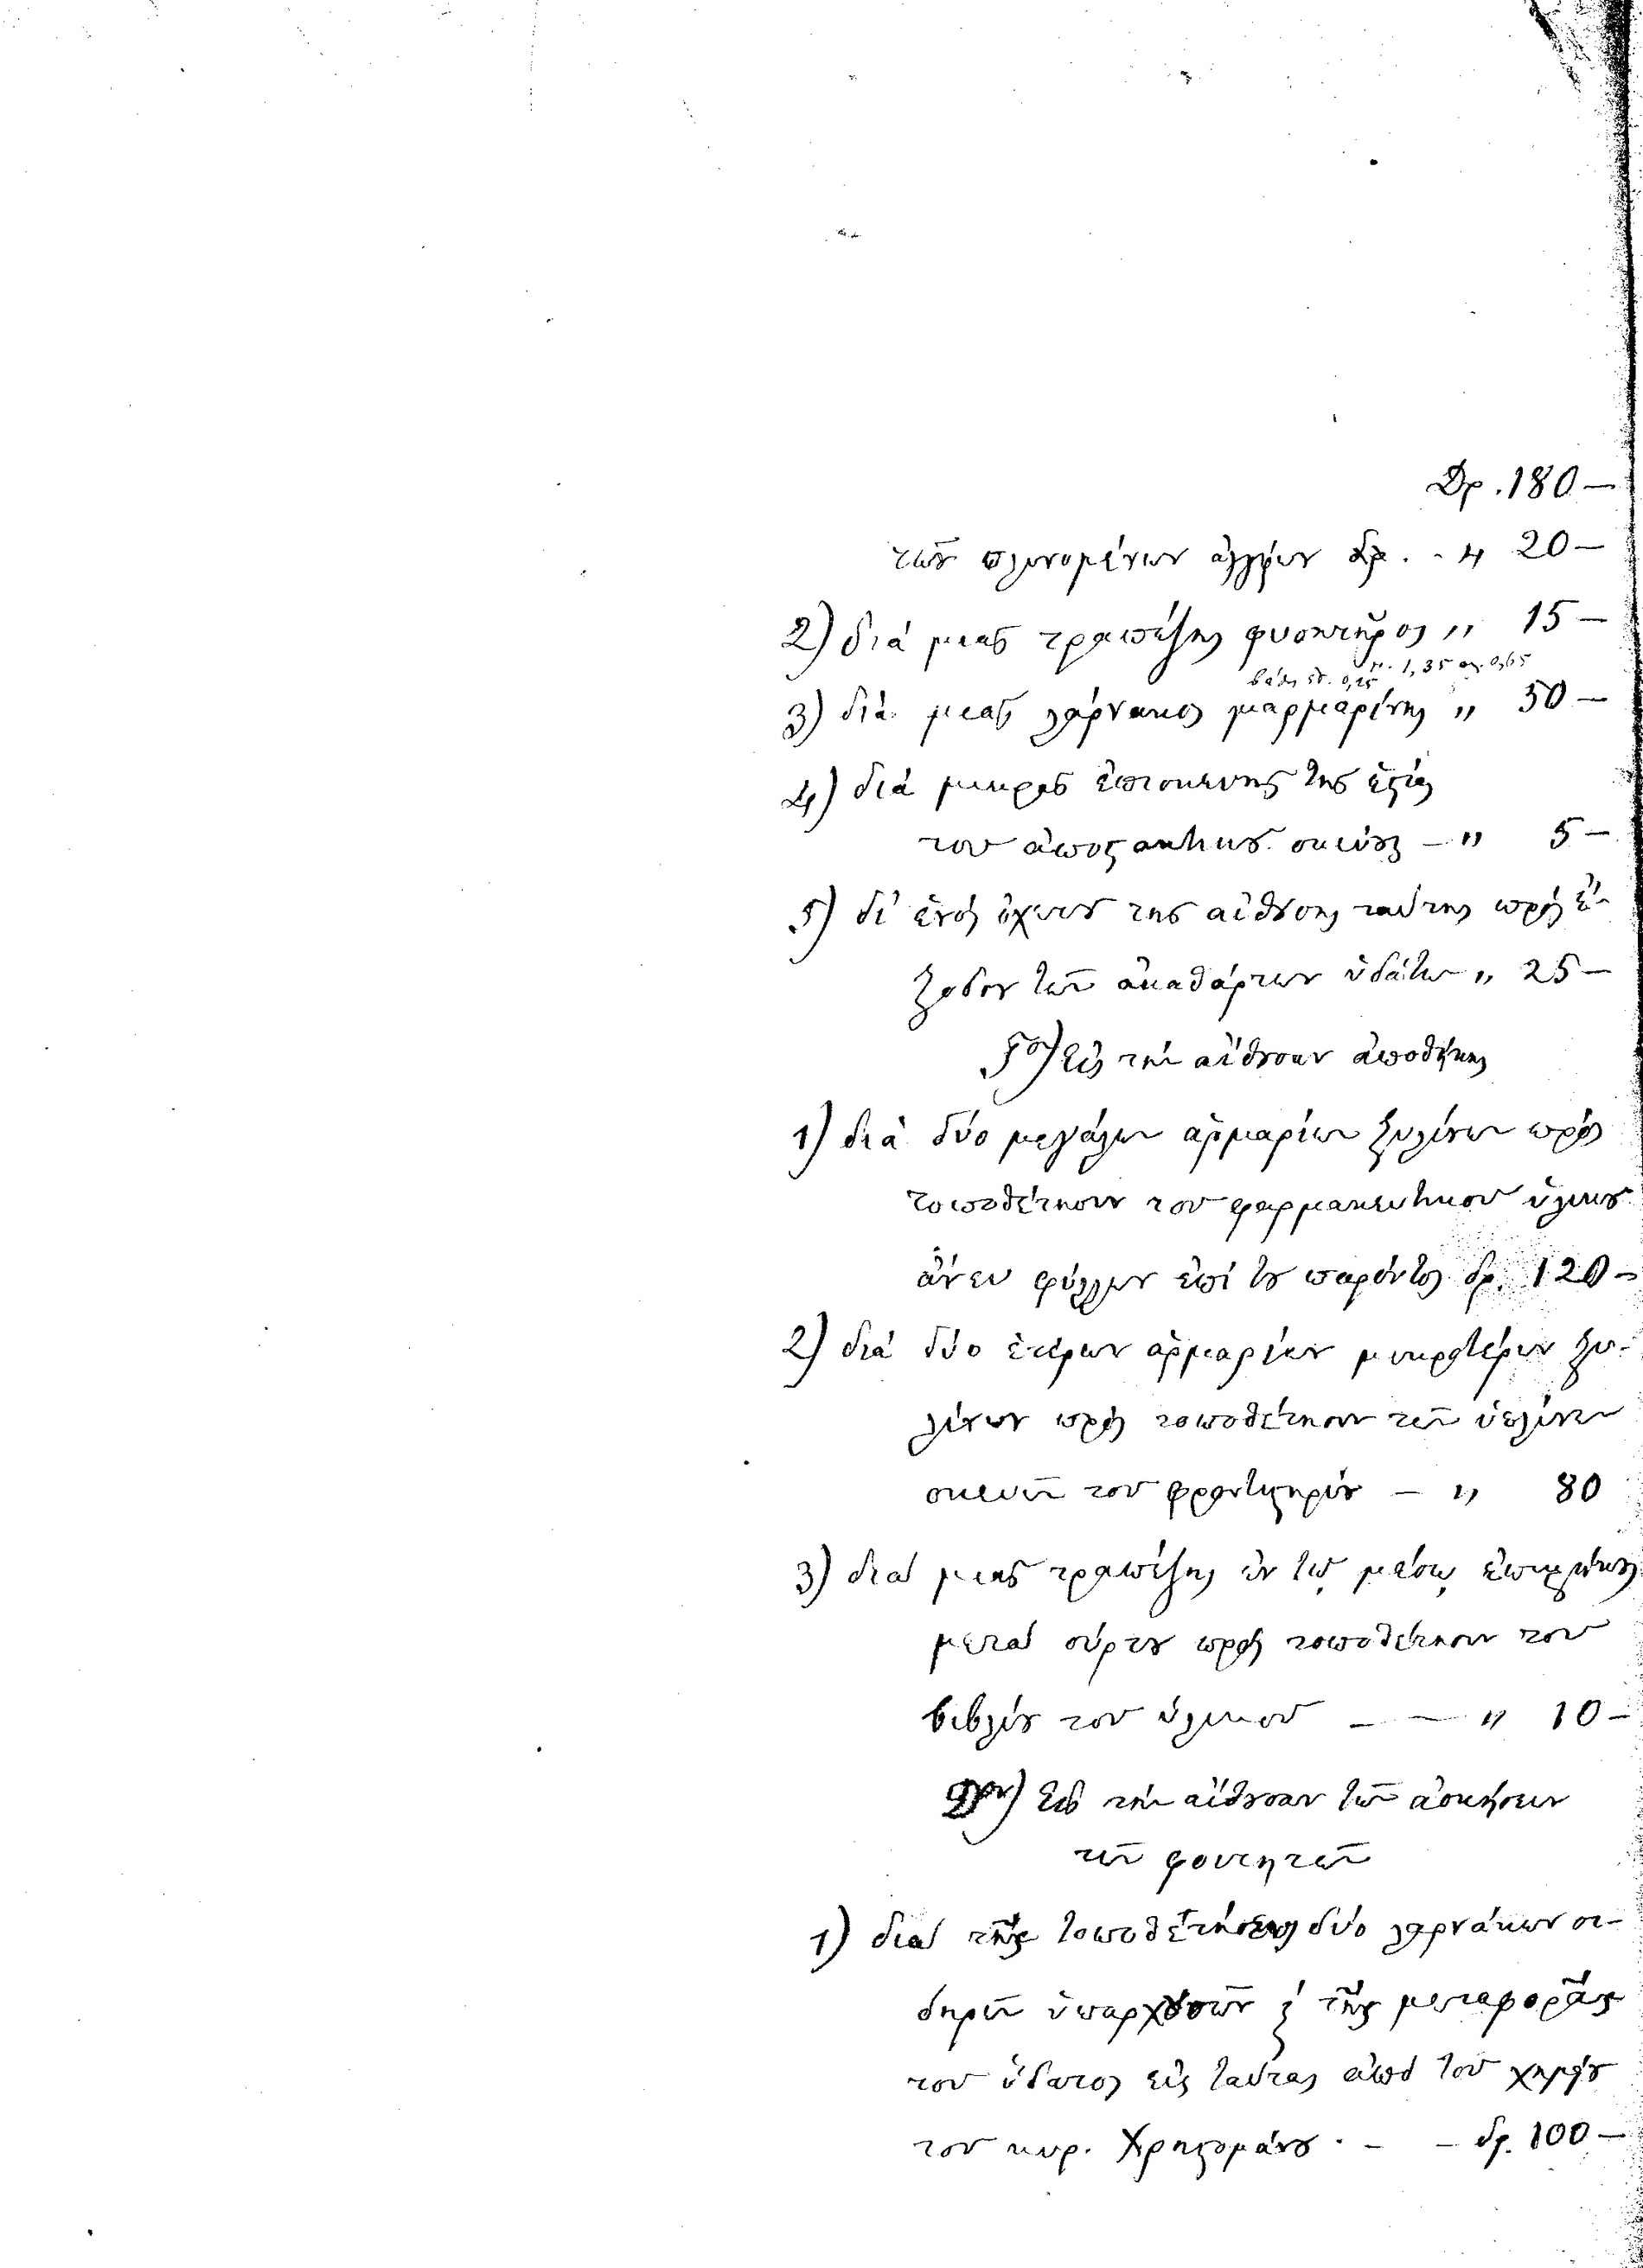 Δρ. 180 —
τῶν πλυνομένων ἀγγείων δρ. - „ 20 —
2) διά μιας τραπέζης φυσητῆρος „ 15 —
βάθ. 0,25 μ. 1,35 0,65
3) διά μιας λάρνακος μαρμαρίνης „ 50 —
4) διά μικρας ἐπισκευης της ἑστίας
του ἀποστακτικου σκεύους — „ 5 —
5) δι' ἑνός ὀχετου της αἰθούσης ταύτης πρός ἔ-
ξοδον των ἀκαθάρτων ὑδάτων „ 25 —
Εἰς τήν αἴθουσαν ἀποθήκης
1) διά δύο μεγάλων ἁρμαρίων ξυλίνων πρός
τοποθέτησιν του φαρμακευτικου ὑλικου
ἄνευ φύλλων ἐπί του παρόντος δρ. 120 —
2) διά δύο ἑτέρων ἁρμαρίων μικροτέρων ξυ-
λίνων πρός τοποθέτησιν των ὑελίνων
σκευων του φροντιστηρίου — „ 80
3) διά μιας τραπέζης ἐν τῳ μέσῳ ἐπιμήκους
μετά σύρτου πρός τοποθέτησιν του
βιβλίου του ὑλικου — — „ 10 —
Εἰς τήν αἴθουσαν των ἀσκήσεων
των φοιτητων
1) διά τῆς τοποθετήσεως δύο λαρνάκων σι-
δηρων ὑπαρχουσων ϗ τῆς μεταφορᾶς
του ὕδατος εἰς ταύτας ἀπό του χημείου
του κυρ. Χρηστομάνου. — — δρ. 100 —